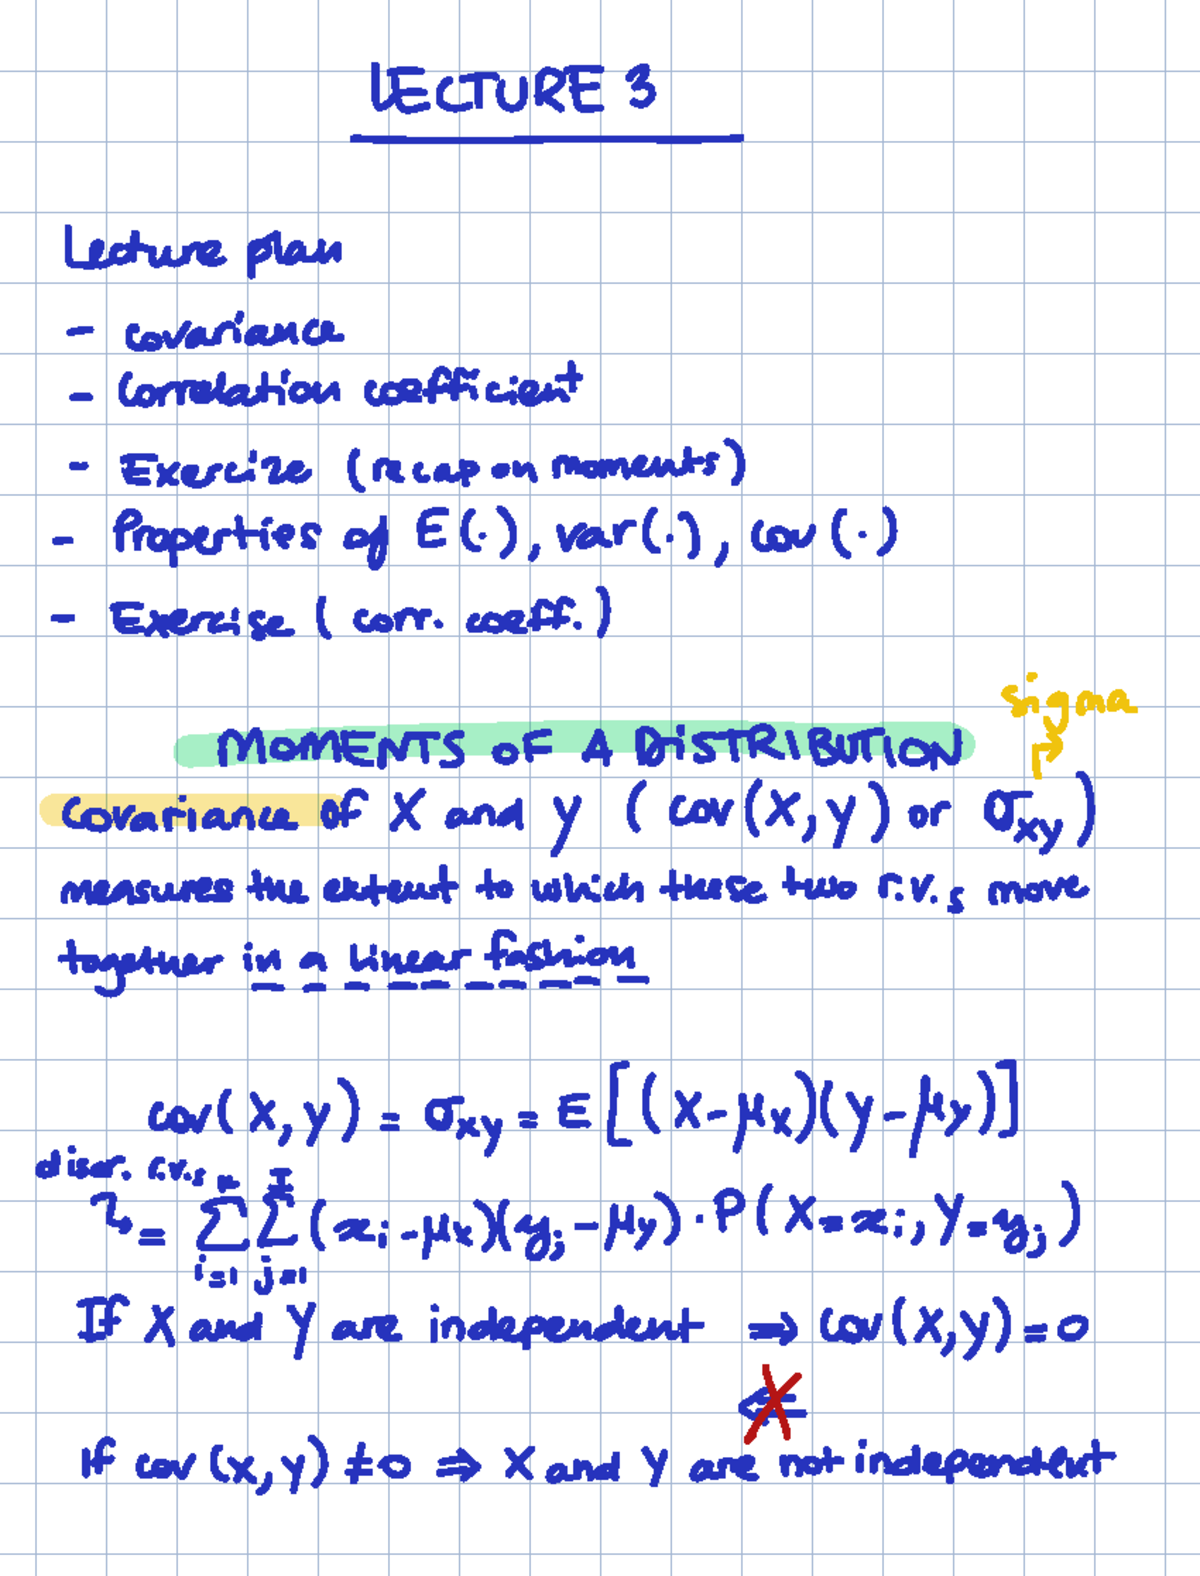 LECTURE 3
Lecture plan
- covariance
- Correlation coefficient
- Exercize (recap on moments)
- Properties of E(·), var(·), cov(·)
- Exercise (corr. coeff.)
sigma
MOMENTS OF A DISTRIBUTION
Covariance of X and y (cov(X,y) or σxy)
measures the extent to which these two r.v.s move
together in a linear fashion
cov(X,y) = σxy = E[(X-μx)(y-μy)]
discr. r.v.s
= Σ Σ (xi-μx)(yj-μy)·P(X=xi, Y=yj)
i=1 j=1
If X and Y are independent ⇒ cov(X,y)=0
⇐
If cov(x,y) ≠0 ⇒ X and Y are not independent